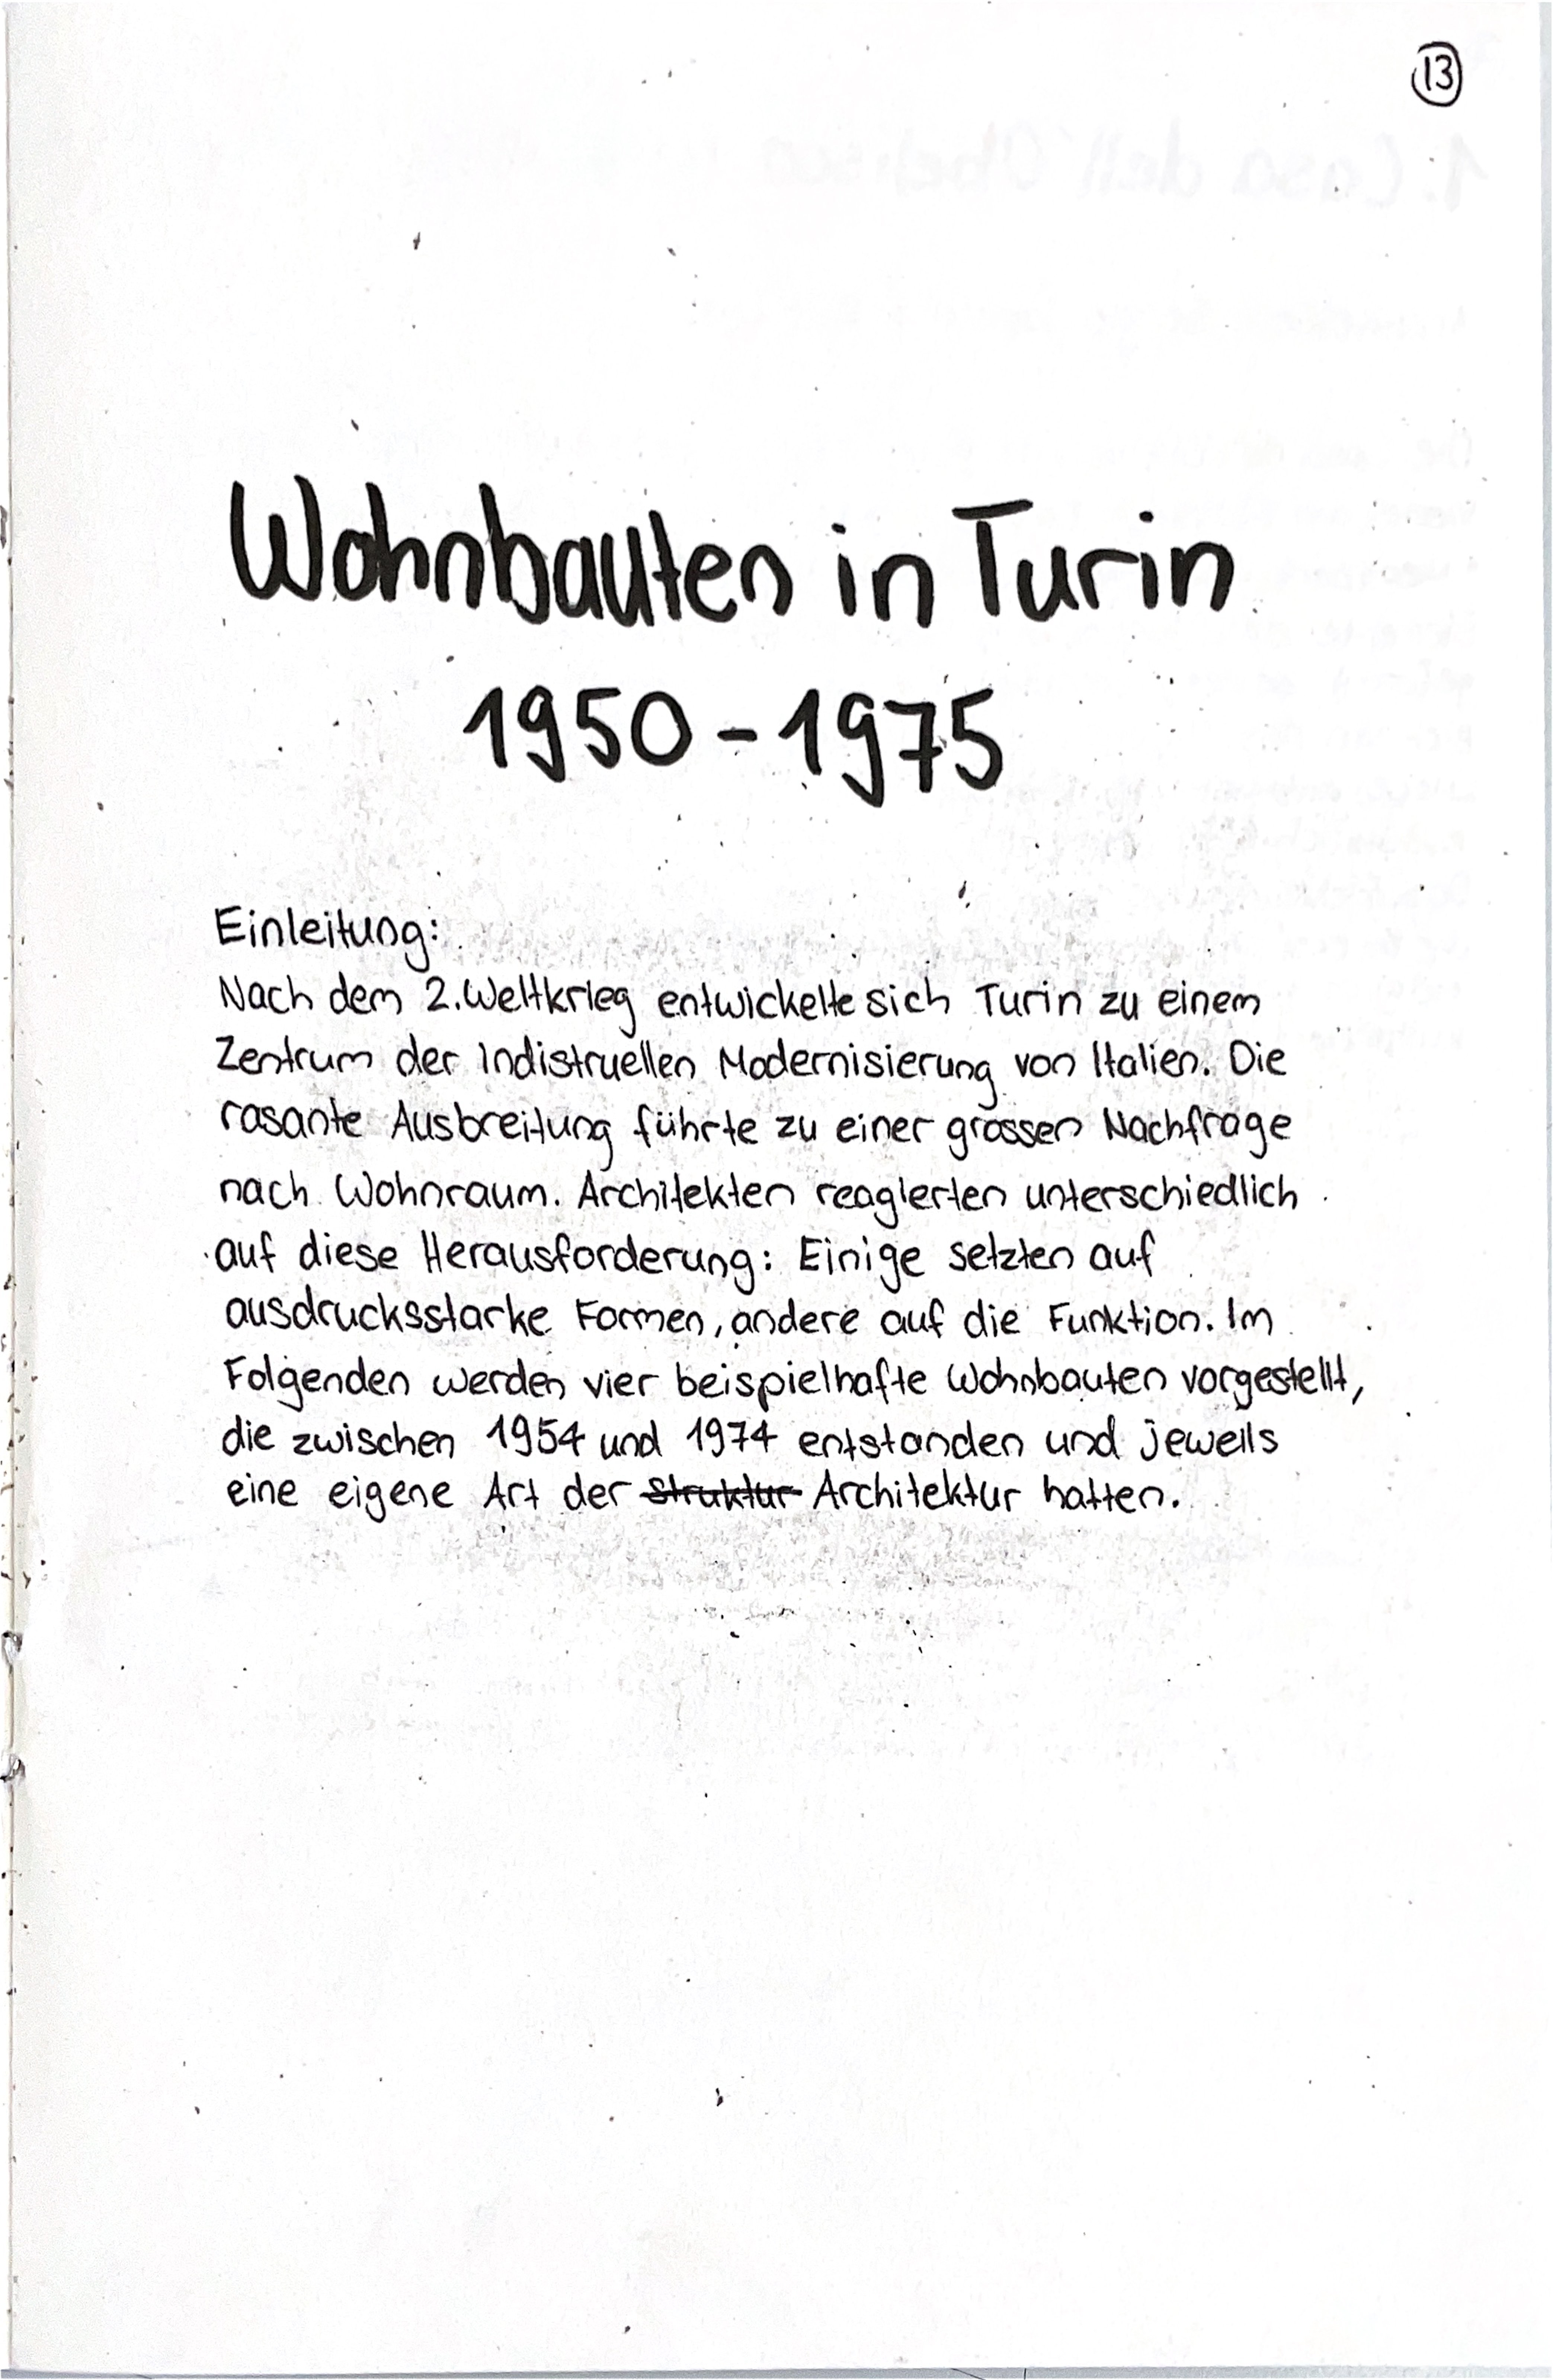 13
Wohnbauten in Turin
1950-1975
Einleitung:
Nach dem 2. Weltkrieg entwickelte sich Turin zu einem
Zentrum der Indistruellen Modernisierung von Italien. Die
rasante Ausbreitung führte zu einer grossen Nachfrage
nach Wohnraum. Architekten reagierten unterschiedlich
auf diese Herausforderung: Einige setzten auf
ausdrucksstarke Formen, andere auf die Funktion. Im
Folgenden werden vier beispielhafte Wohnbauten vorgestellt,
die zwischen 1954 und 1974 entstanden und jeweils
eine eigene Art der struktur Architektur hatten.